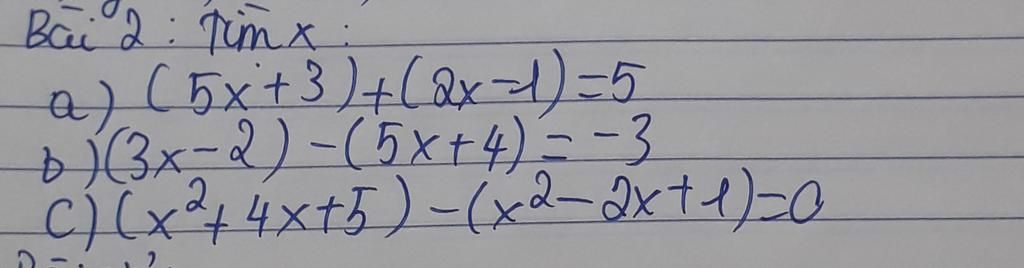 Bài 2: Tìm x:
a) (5x+3)+(2x-1)=5
b) (3x-2)-(5x+4)=-3
c) (x²+4x+5)-(x²-2x+1)=0